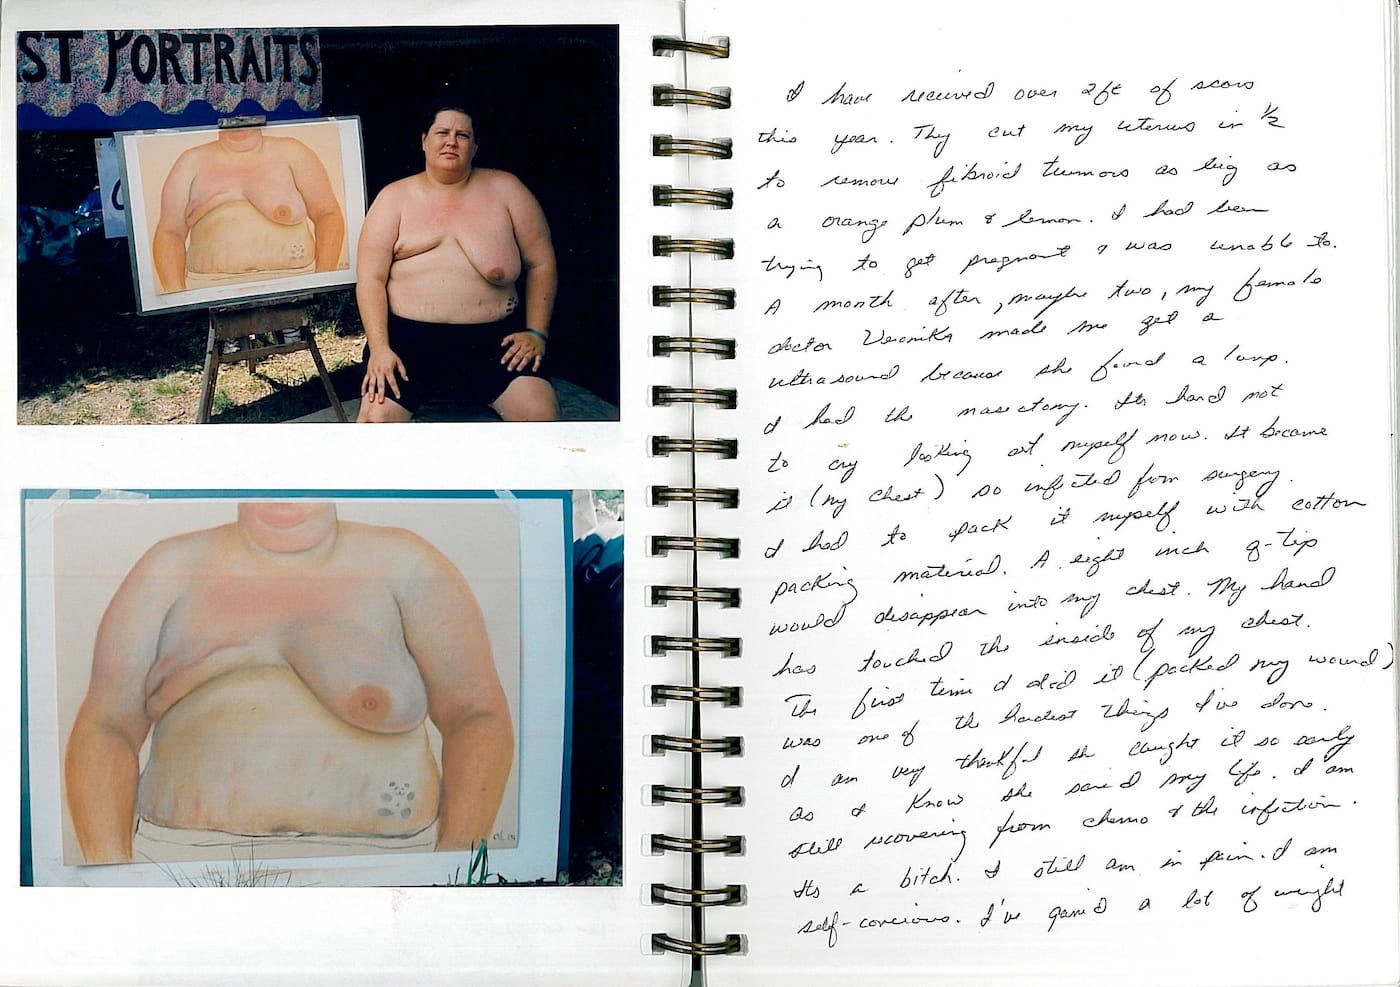 ST PORTRAITS
I have received over 2ft of scars
this year. They cut my uterus in 1/2
to remove fibroid tumors as big as
a orange plum & lemon. I had been
trying to get pregnant & was unable to.
A month after, maybe two, my female
doctor Veronika made me get a
ultrasound because she found a lump.
I had the masectomy. Its hard not
to cry looking at myself now. It became
it (my chest) so infected from surgery.
I had to pack it myself with cotton
packing material. A eight inch q-tip
would disappear into my chest. My hand
has touched the inside of my chest.
The first time I did it (packed my wound)
was one of the hardest things I've done.
I am very thankful she caught it so early
as I know she saved my life. I am
still recovering from chemo & the infection.
Its a bitch. I still am in pain. I am
self-concious. I've gained a lot of weight